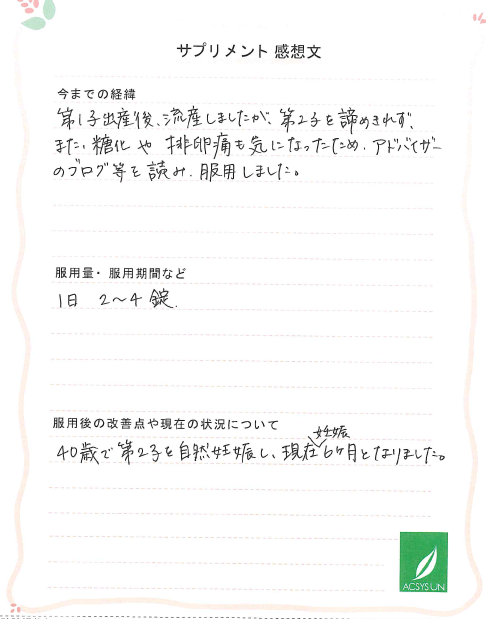 サプリメント 感想文
今までの経緯
第1子出産後、流産しましたが、第2子を諦めきれず、
また、糖化や 排卵痛も気になったため、アドバイザー
のブログ等を読み、服用しました。
服用量・服用期間など
1日 2〜4錠.
服用後の改善点や現在の状況について
妊娠
40歳で第2子を自然妊娠し、現在6ヶ月となりました。
ACSYSUN